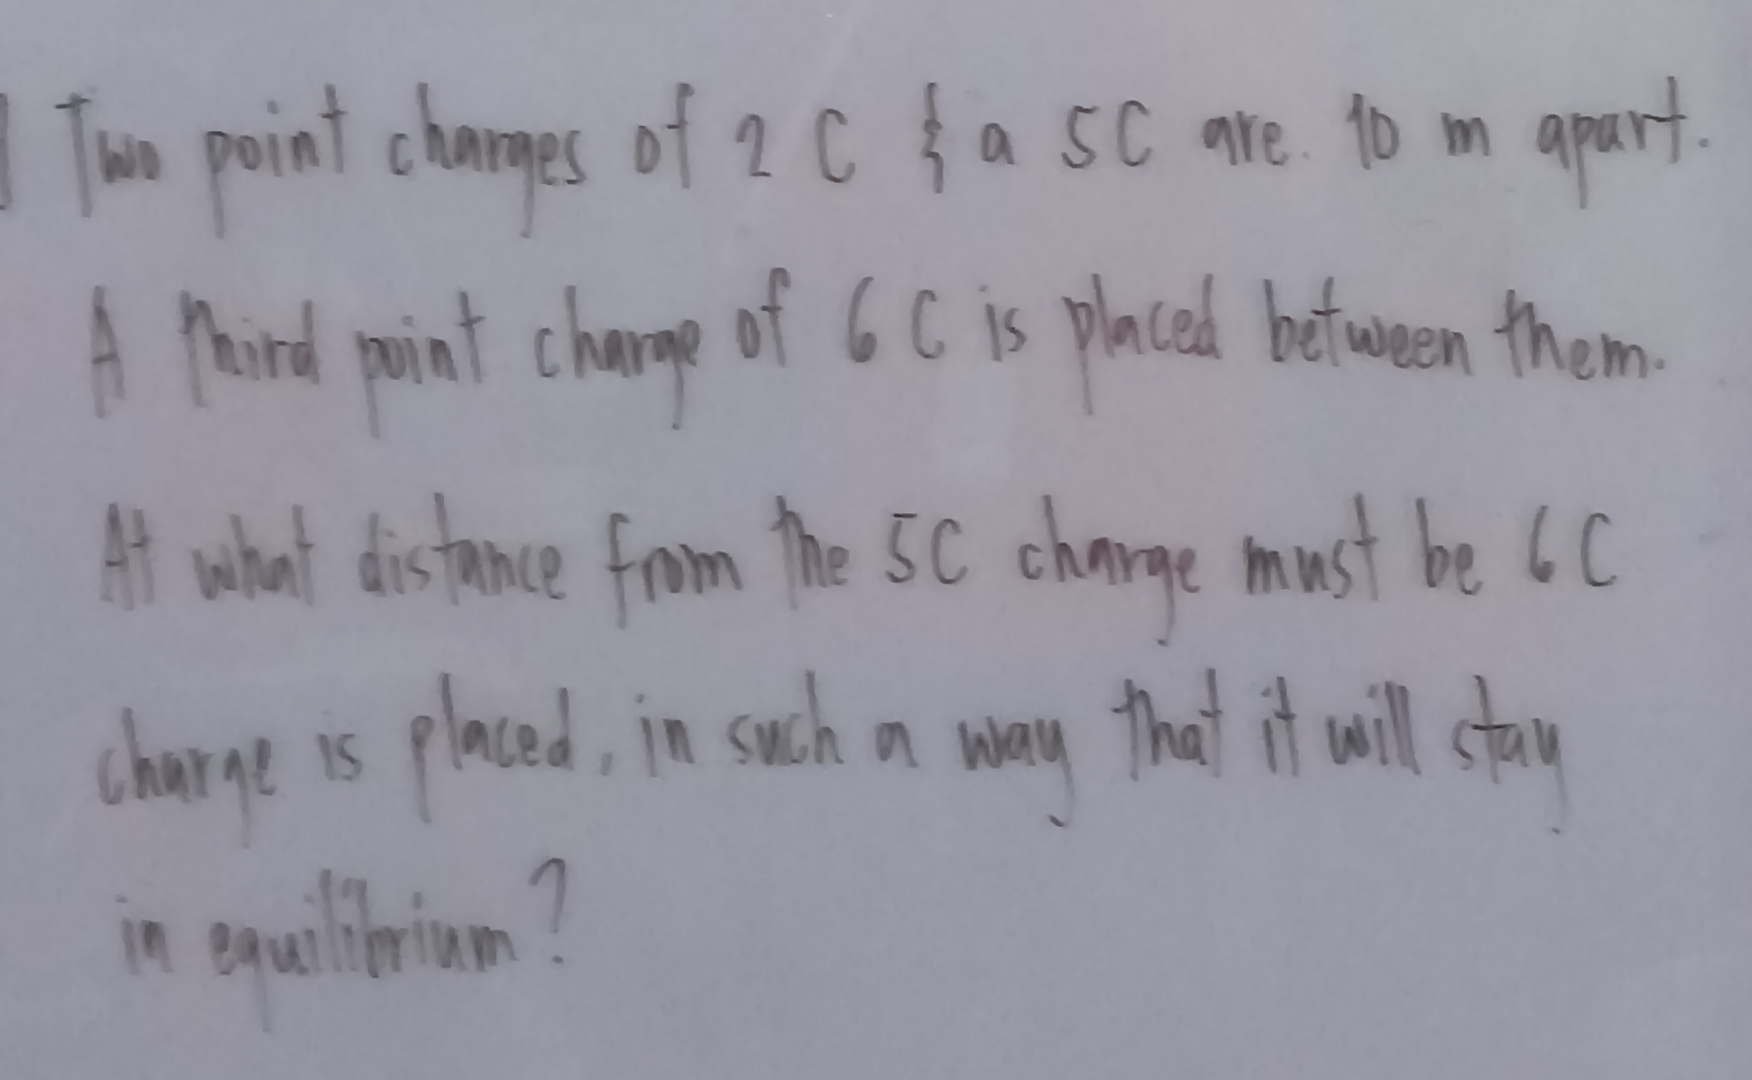 Two point charges of 2 C & a 5C are. 10 m apart.
A third point charge of 6 C is placed between them.
At what distance from the 5C charge must be 6C
charge is placed, in such a way that it will stay
in equilibrium?